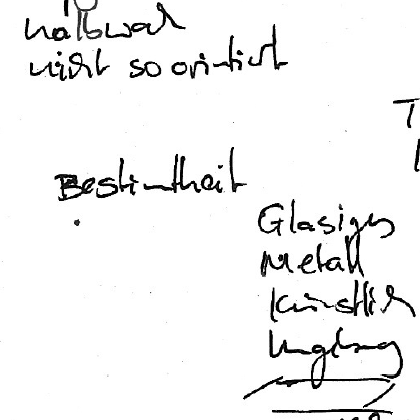 halbwach
nicht so orientiert
Bestimmtheit
Glasiges
Metall
künstlich